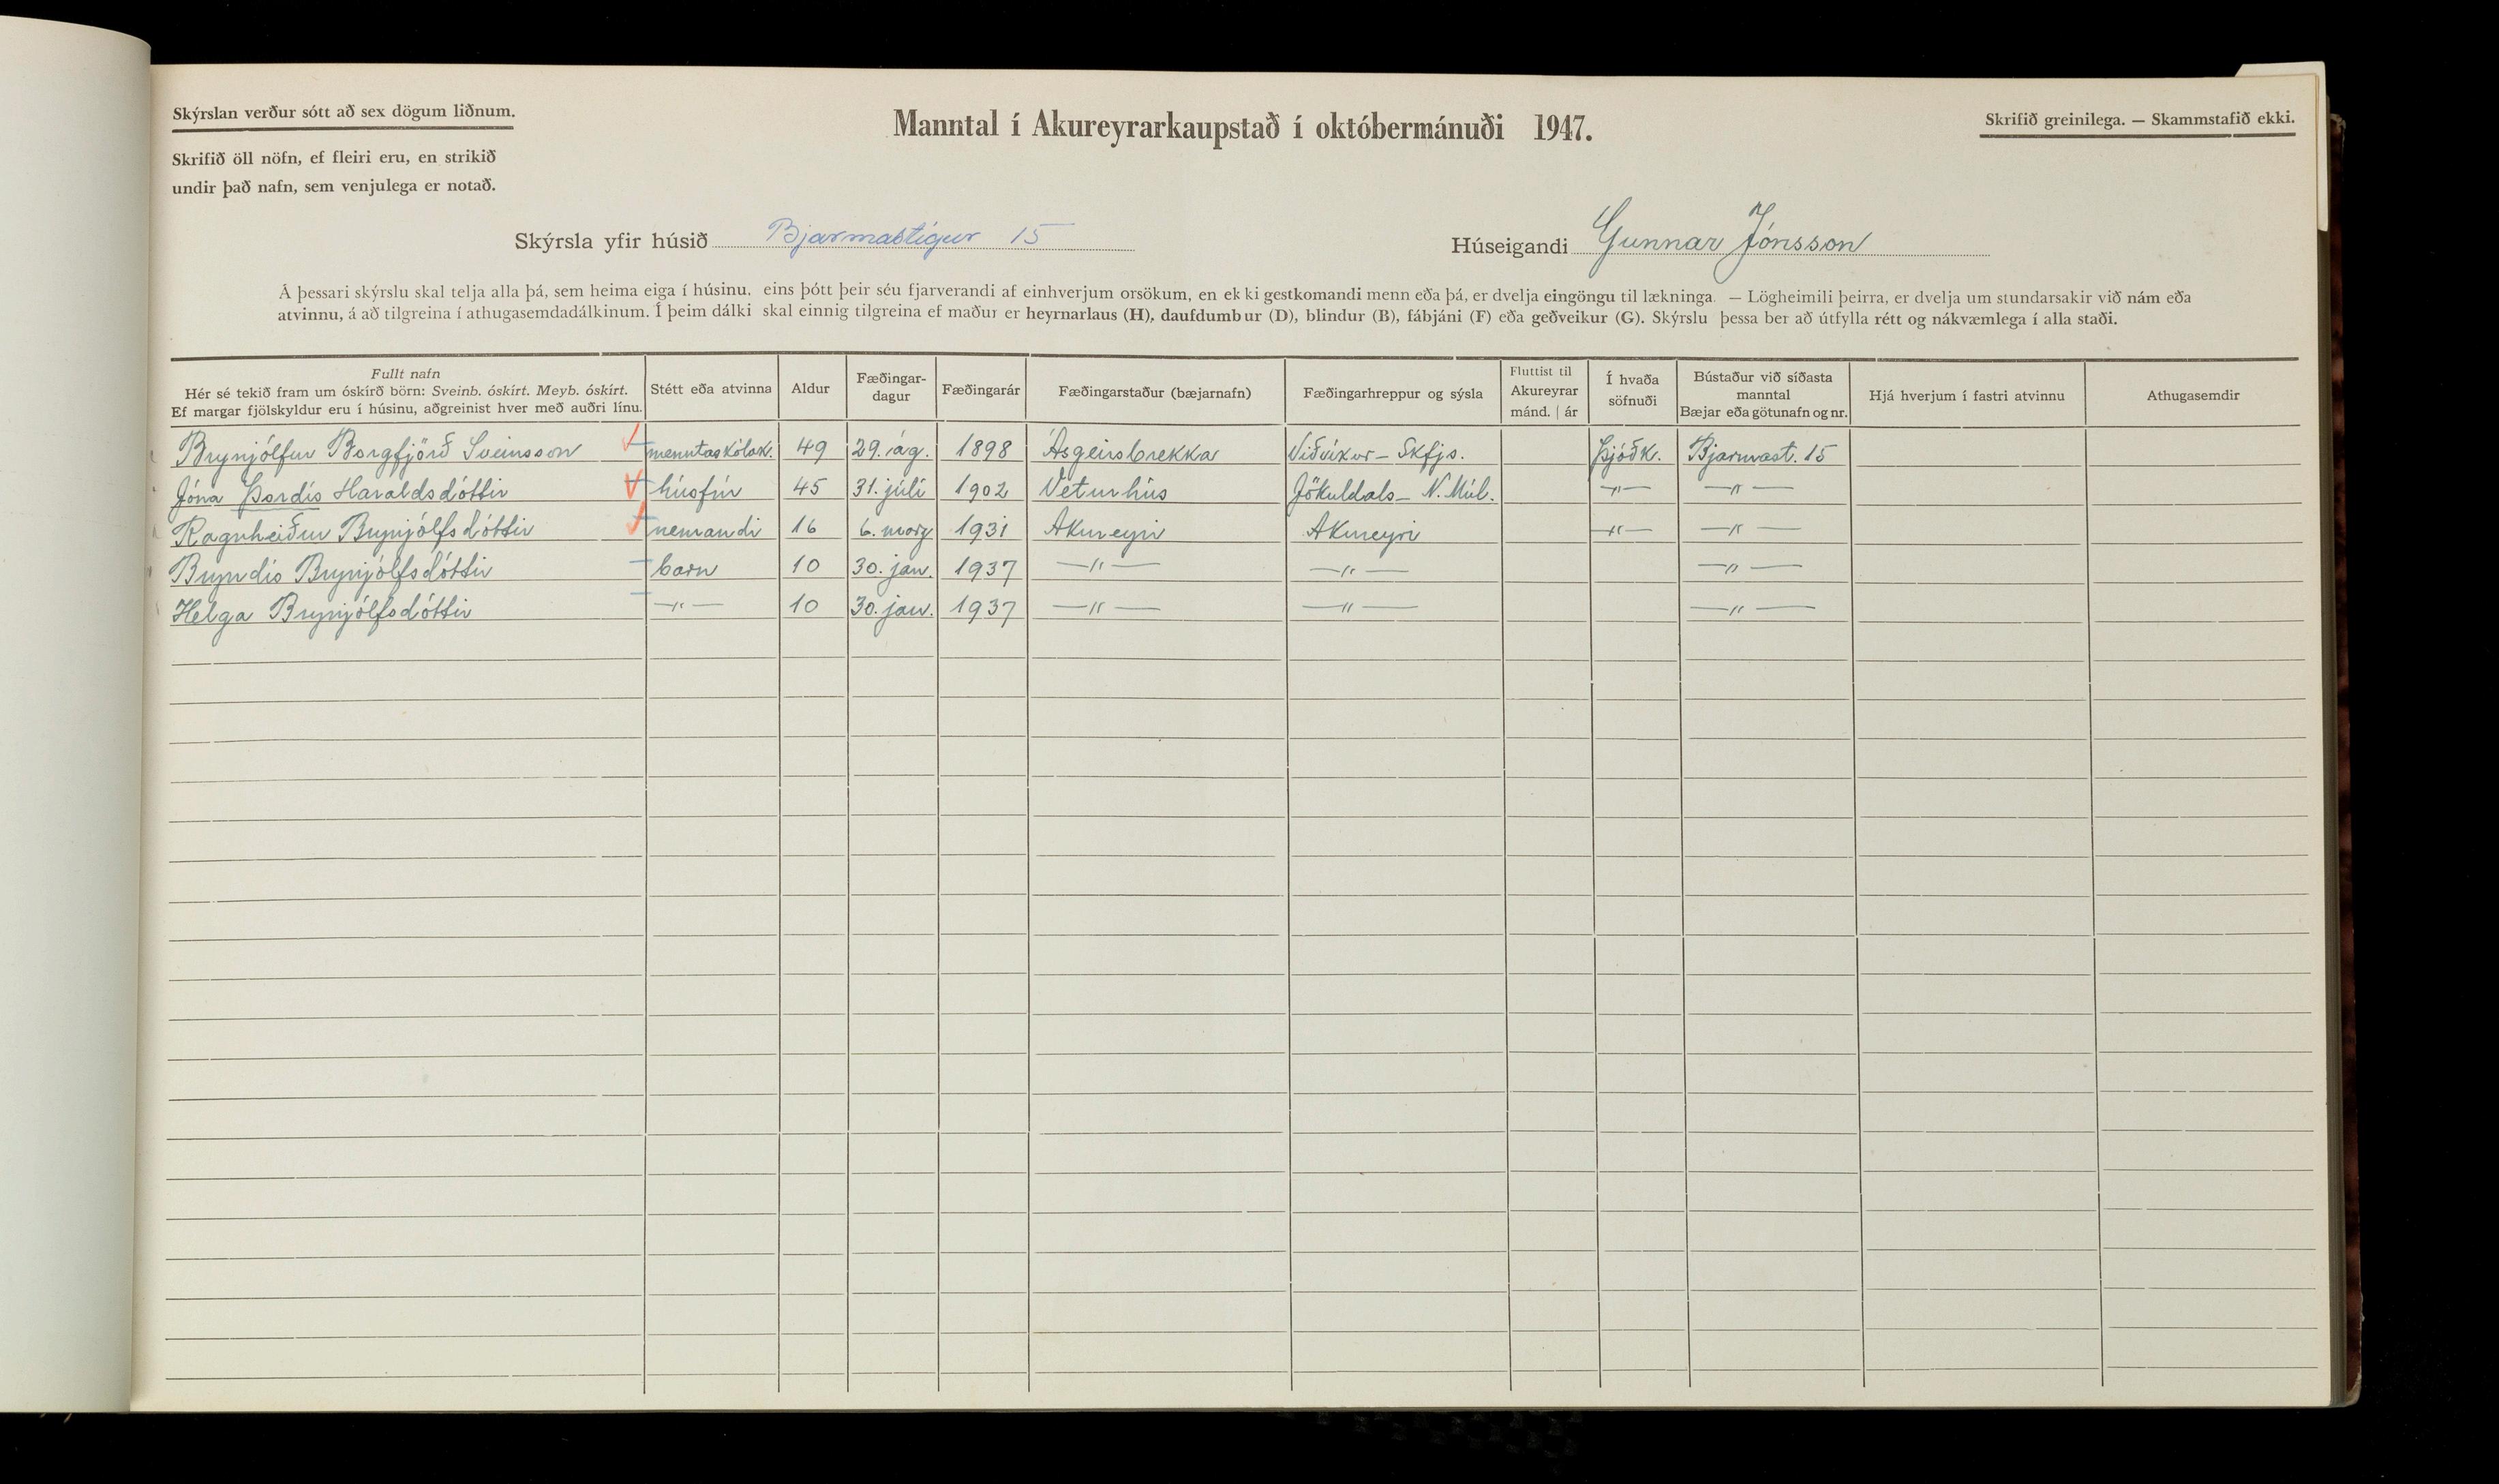 Skýrslan verður sótt að sex dögum liðnum.
Manntal í Akureyrarkaupstað í októbermánuði 1947.
Skrifið greinilega. — Skammstafið ekki.
Skrifið öll nöfn, ef fleiri eru, en strikið
undir það nafn, sem venjulega er notað.
Skýrsla yfir húsið Bjarmastígur 15
Húseigandi Gunnar Jónsson
Á þessari skýrslu skal telja alla þá, sem heima eiga í húsinu, eins þótt þeir séu fjarverandi af einhverjum orsökum, en ekki gestkomandi menn eða þá, er dvelja eingöngu til lækninga. — Lögheimili þeirra, er dvelja um stundarsakir við nám eða
atvinnu, á að tilgreina í athugasemdadálkinum. Í þeim dálki skal einnig tilgreina ef maður er heyrnarlaus (H), daufdumbur (D), blindur (B), fábjáni (F) eða geðveikur (G). Skýrslu þessa ber að útfylla rétt og nákvæmlega í alla staði.
Fullt nafn
Hér sé tekið fram um óskírð börn: Sveinb. óskírt. Meyb. óskírt.
Ef margar fjölskyldur eru í húsinu, aðgreinist hver með auðri línu.
Stétt eða atvinna
Aldur
Fæðingar-
dagur
Fæðingarár
Fæðingarstaður (bæjarnafn)
Fæðingarhreppur og sýsla
Fluttist til
Akureyrar
mánd. | ár
Í hvaða
söfnuði
Bústaður við síðasta
manntal
Bæjar eða götunafn og nr.
Hjá hverjum í fastri atvinnu
Athugasemdir
Brynjólfur Borgfjörð Sveinsson menntaskólak. 49 29. ág. 1898 Ásgeirsbrekka Viðvíkur- Skfjs. Þjóðk. Bjarmast. 15
Jóna Þordís Haraldsdóttir húsfrú 45 31. júlí 1902 Veturhús Jökuldals- N. Múl. —"— —"—
Ragnheiður Brynjólfsdóttir nemandi 16 6. marz 1931 Akureyri Akureyri —"— —"—
Bryndís Brynjólfsdóttir barn 10 30. jan. 1937 —"— —"— —"—
Helga Brynjólfsdóttir —"— 10 30. jan. 1937 —"— —"— —"—